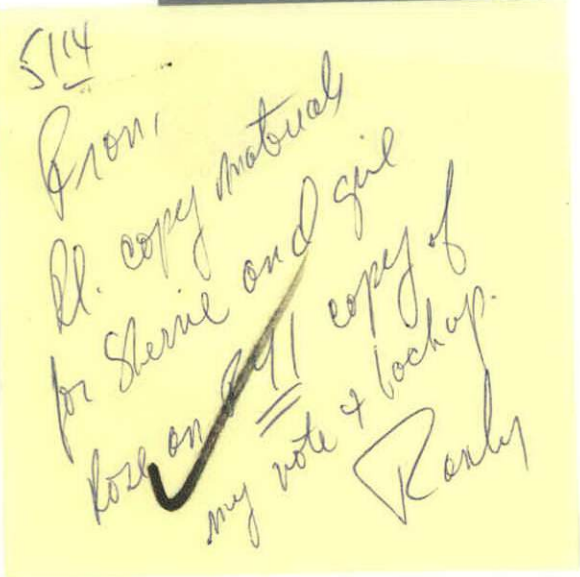 5/14
Pl. copy materials
for Sherrie and give
Rose on copy of
my vote & backup.
Randy